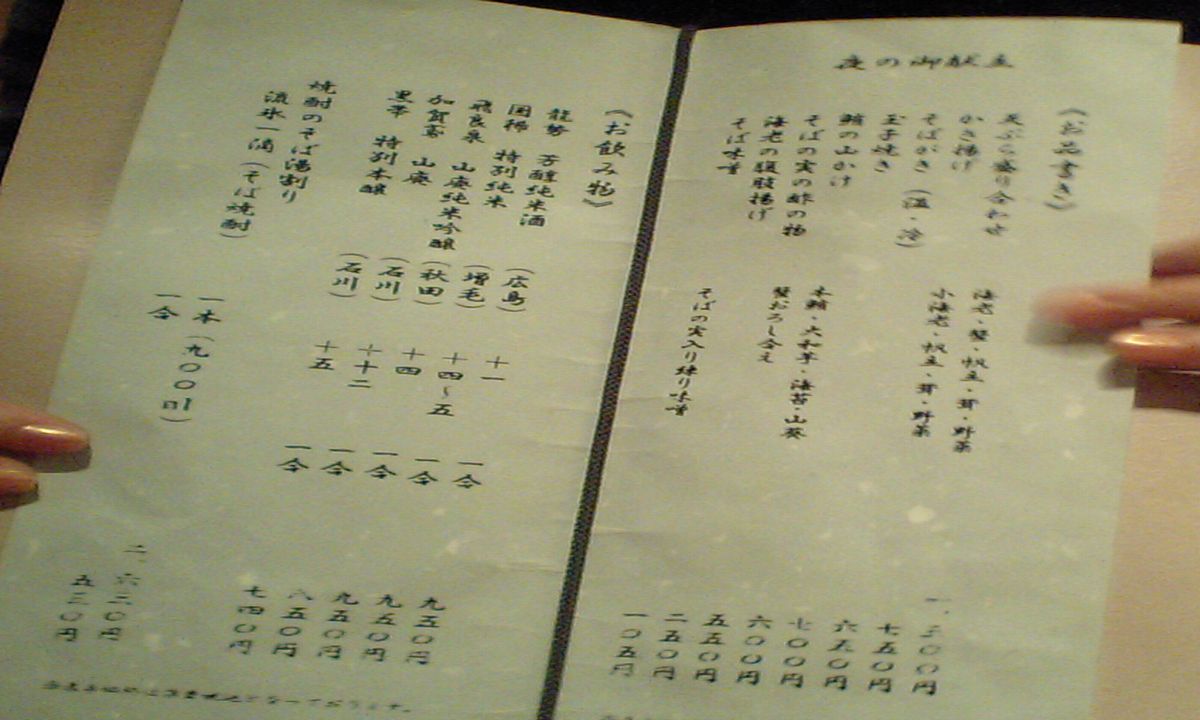 夜の御献立
《お品書き》
天ぷら盛り合わせ 海老・蟹・帆立・茸・野菜
かき揚げ 小海老・帆立・茸・野菜 七五〇円
そばがき (温・冷) 六五〇円
玉子焼き 七〇〇円
鮪の山かけ 本鮪・大和芋・海苔・山葵 六〇〇円
そばの実の酢の物 蟹おろし合え 五五〇円
海老の腹肢揚げ 二五〇円
そば味噌 そばの実入り練り味噌 一〇五円
《お飲み物》
龍勢 芳醇純米酒 (広島) 十一 一合 九五〇円
国稀 特別純米 (増毛) 十四〜五 一合 九五〇円
飛良泉 山廃純米吟醸 (秋田) 十四 一合 九五〇円
加賀鳶 山廃 (石川) 十十二 一合 八五〇円
黒帯 特別本醸 (石川) 十五 一合 七四〇円
焼酎のそば湯割り
流氷一滴(そば焼酎) 一本(九〇〇ml) 二、六二〇円
一合 五三〇円